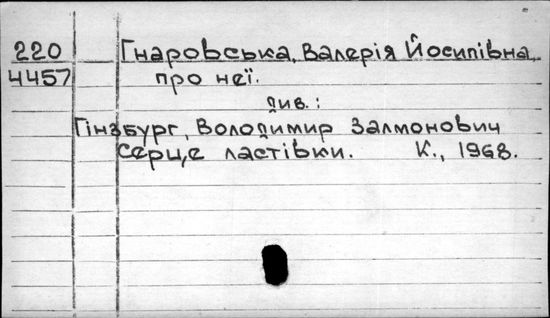 220 Гнаровська, Валерія Йосипівна,
4457 про неї.
див.:
Гінзбург, Володимир Залмонович
Серце ластівки. К., 1968.